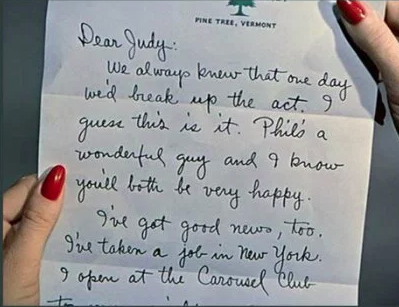 PINE TREE, VERMONT
Dear Judy:
We always knew that one day
we'd break up the act. I
guess this is it. Phil's a
wonderful guy and I know
you'll both be very happy.
I've got good news, too.
I've taken a job in New York.
I open at the Carousel Club